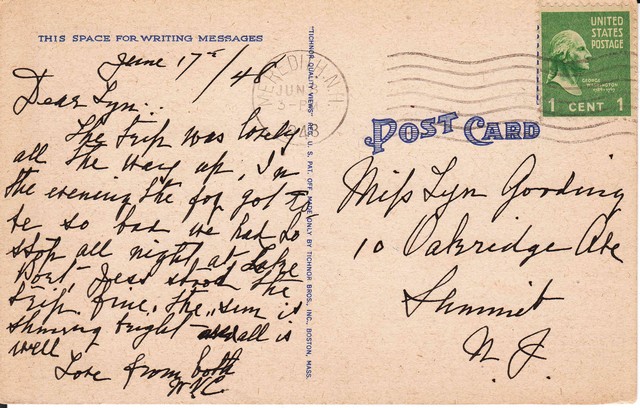 THIS SPACE FOR WRITING MESSAGES
June 17th / 48
Dear Lyn..
The trip was lovely
all the way up, In
the evening the fog got to
be so bad we had to
stop all night at Lake
Port, Jess stood the
trip fine. The sun is
shining bright all is
well
Love from both
"TICHNOR QUALITY VIEWS" REG. U. S. PAT. OFF. MADE ONLY BY TICHNOR BROS. INC., BOSTON, MASS.
MEREDITH, N.H.
JUN
3-P
48
UNITED
STATES
POSTAGE
GEORGE
WASHINGTON
1 CENT 1
POST CARD
Miss Lyn Gooding
10 Oakridge Ave
Summit
N. J.